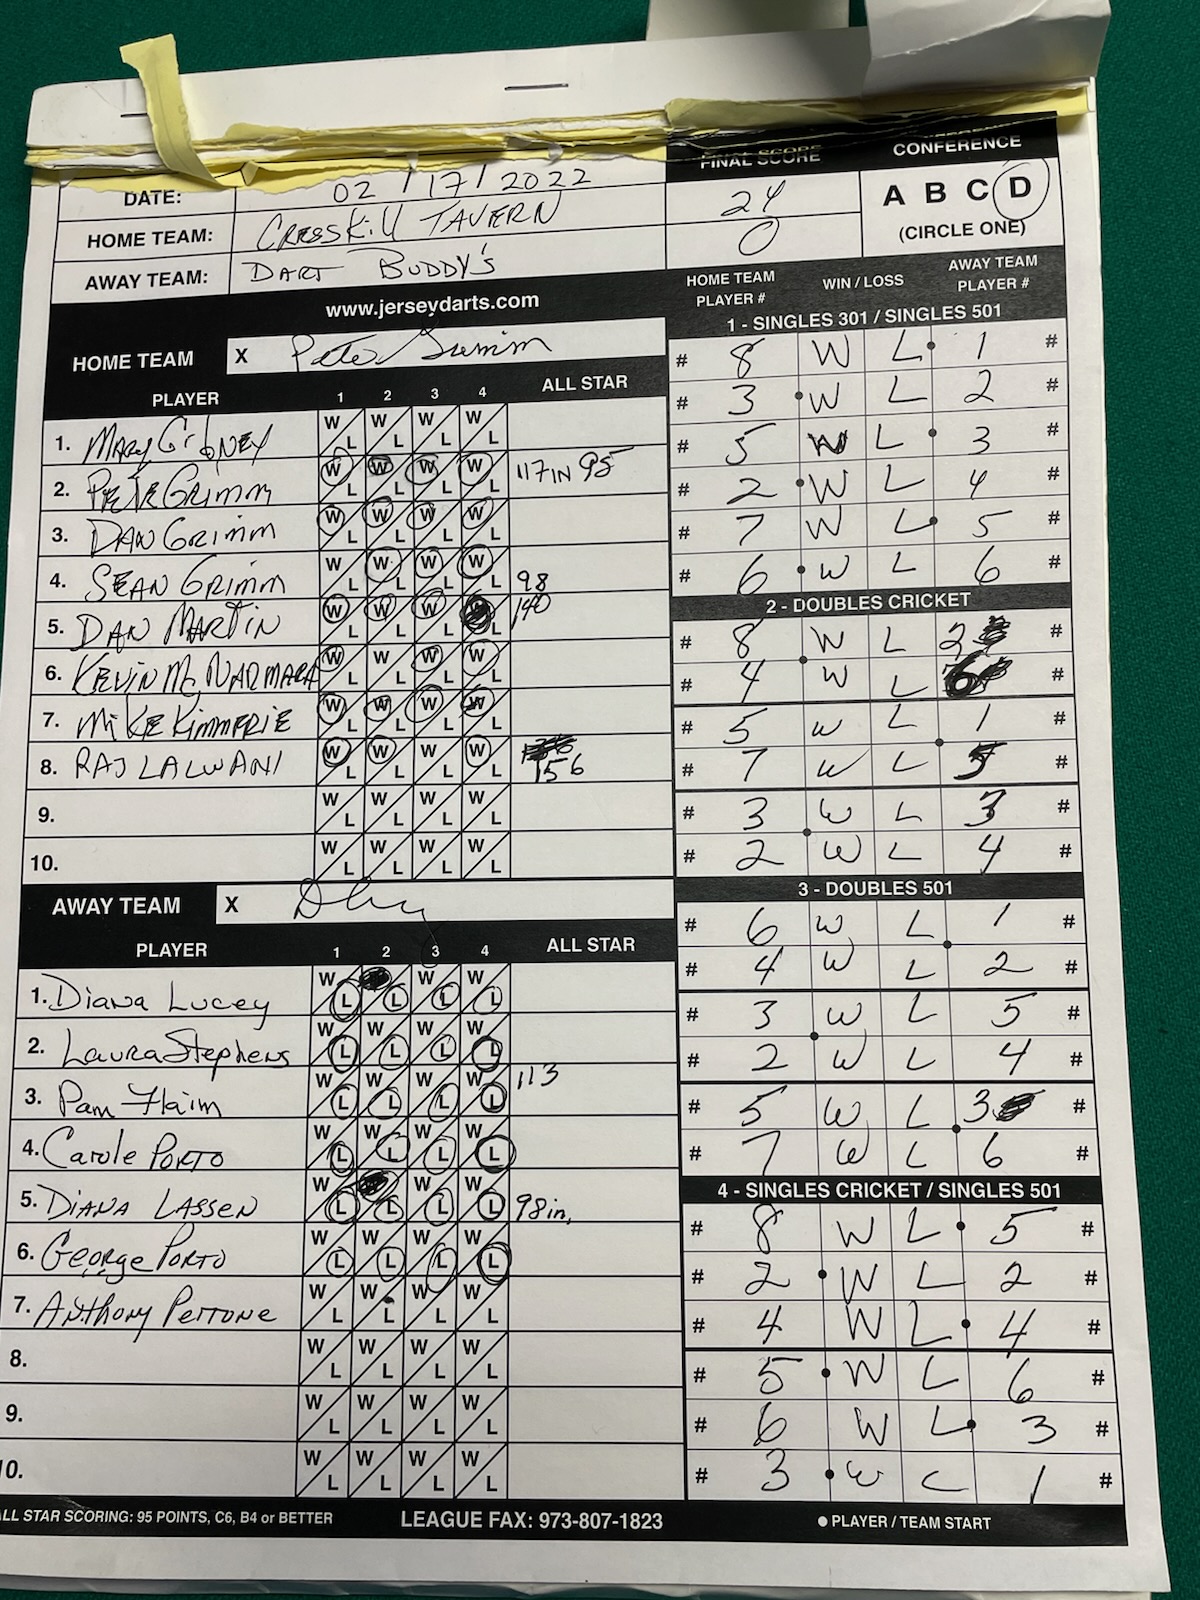 FINAL SCORE
CONFERENCE
DATE: 02/17/2022
24
A B C D
HOME TEAM: CRESSKILL TAVERN
0
(CIRCLE ONE)
AWAY TEAM: DART BUDDY'S
www.jerseydarts.com
HOME TEAM PLAYER # WIN / LOSS AWAY TEAM PLAYER #
HOME TEAM X Pete Grimm
PLAYER 1 2 3 4 ALL STAR
1. MARY GIBNEY W L W L W L W L
2. PETE GRIMM W L W L W L W L 117 IN 95
3. DAN GRIMM W L W L W L W L
4. SEAN GRIMM W L W L W L W L 98
5. DAN MARTIN W L W L W L L 140
6. KEVIN McNARMARA W L W L W L W L
7. MIKE KIMMERIE W L W L W L W L
8. RAJ LALWANI W L W L W L W L 156
9. W L W L W L W L
10. W L W L W L W L
AWAY TEAM X
PLAYER 1 2 3 4 ALL STAR
1. Diana Lucey W L L W L W L
2. Laura Stephens W L W L W L W L
3. Pam Flaim W L W L W L W L 113
4. Carole PORTO W L W L W L W L
5. DIANA LASSEN W L L W L W L 98 in.
6. George PORTO W L W L W L W L
7. Anthony Perrone W L W L W L W L
8. W L W L W L W L
9. W L W L W L W L
10. W L W L W L W L
1 - SINGLES 301 / SINGLES 501
# 8 W L 1 #
# 3 W L 2 #
# 5 W L 3 #
# 2 W L 4 #
# 7 W L 5 #
# 6 W L 6 #
2 - DOUBLES CRICKET
# 8 W L 2 #
# 4 W L 6 #
# 5 W L 1 #
# 7 W L 5 #
# 3 W L 3 #
# 2 W L 4 #
3 - DOUBLES 501
# 6 W L 1 #
# 4 W L 2 #
# 3 W L 5 #
# 2 W L 4 #
# 5 W L 3 #
# 7 W L 6 #
4 - SINGLES CRICKET / SINGLES 501
# 8 W L 5 #
# 2 W L 2 #
# 4 W L 4 #
# 5 W L 6 #
# 6 W L 3 #
# 3 W L 1 #
ALL STAR SCORING: 95 POINTS, C6, B4 or BETTER LEAGUE FAX: 973-807-1823 ● PLAYER / TEAM START